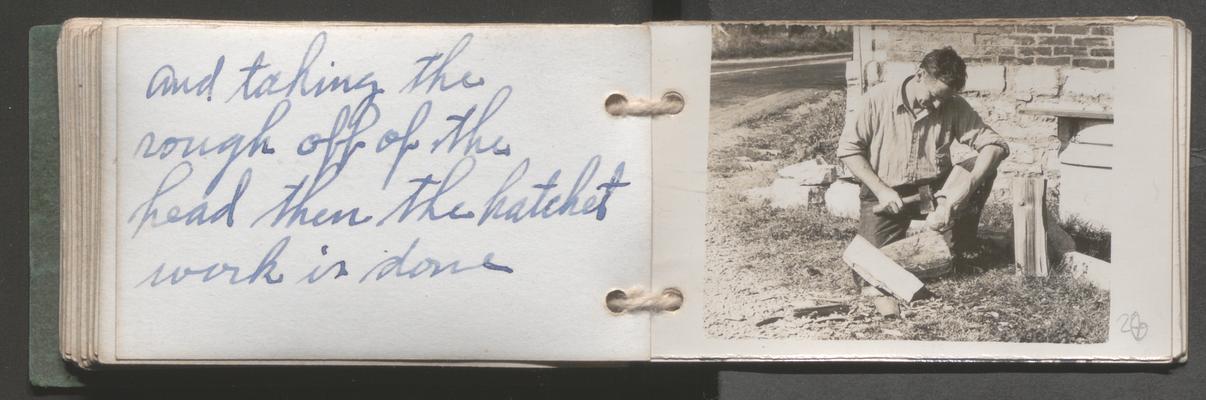 and taking the
rough off of the
head then the hatchet
work is done